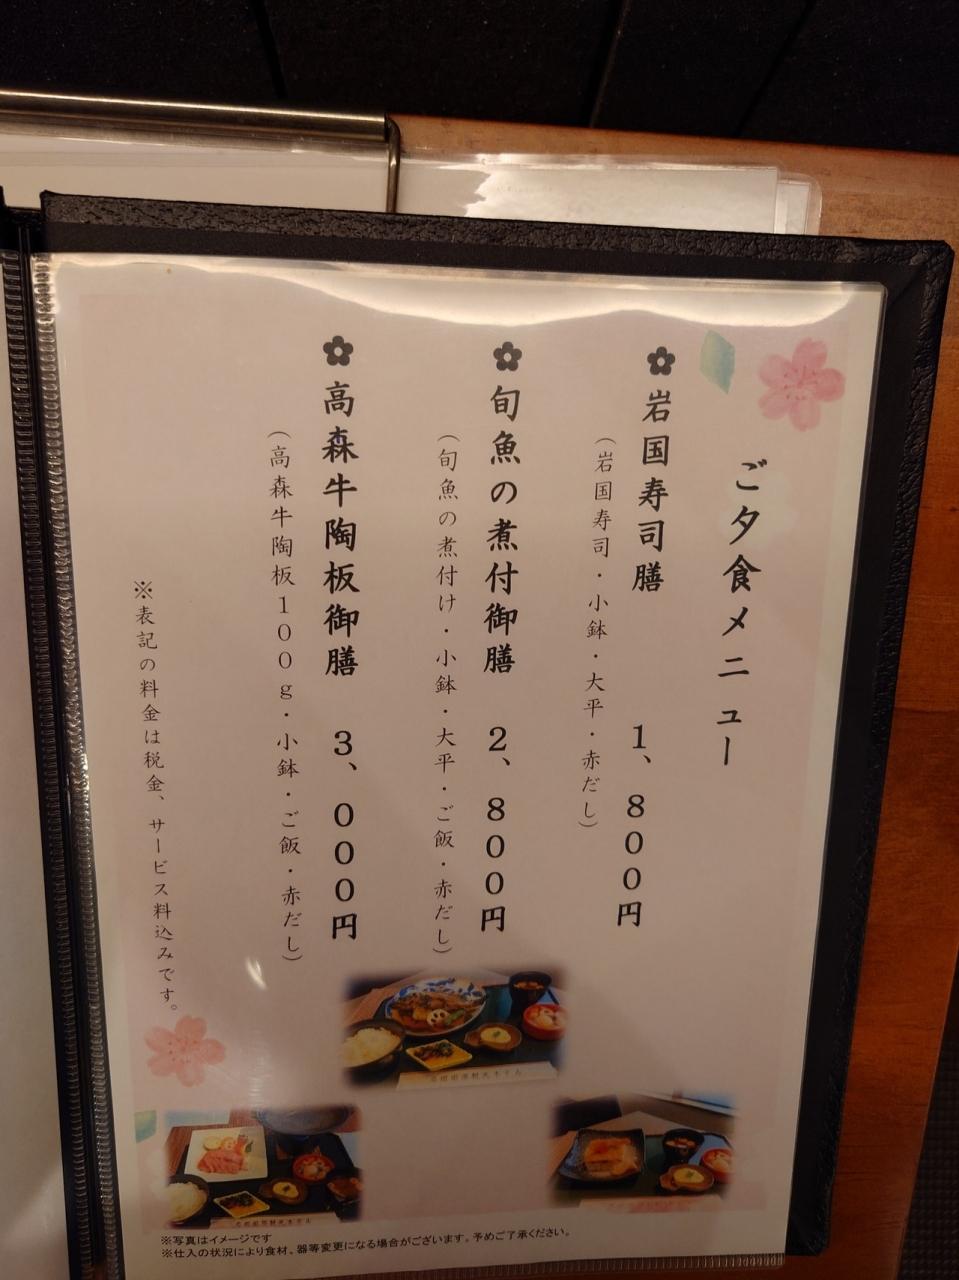 ご夕食メニュー
✿岩国寿司膳 1、800円
（岩国寿司・小鉢・大平・赤だし）
✿旬魚の煮付御膳 2、800円
（旬魚の煮付け・小鉢・大平・ご飯・赤だし）
✿高森牛陶板御膳 3、000円
（高森牛陶板100g・小鉢・ご飯・赤だし）
※表記の料金は税金、サービス料込みです。
※写真はイメージです
※仕入の状況により食材、器等変更になる場合がございます。予めご了承ください。